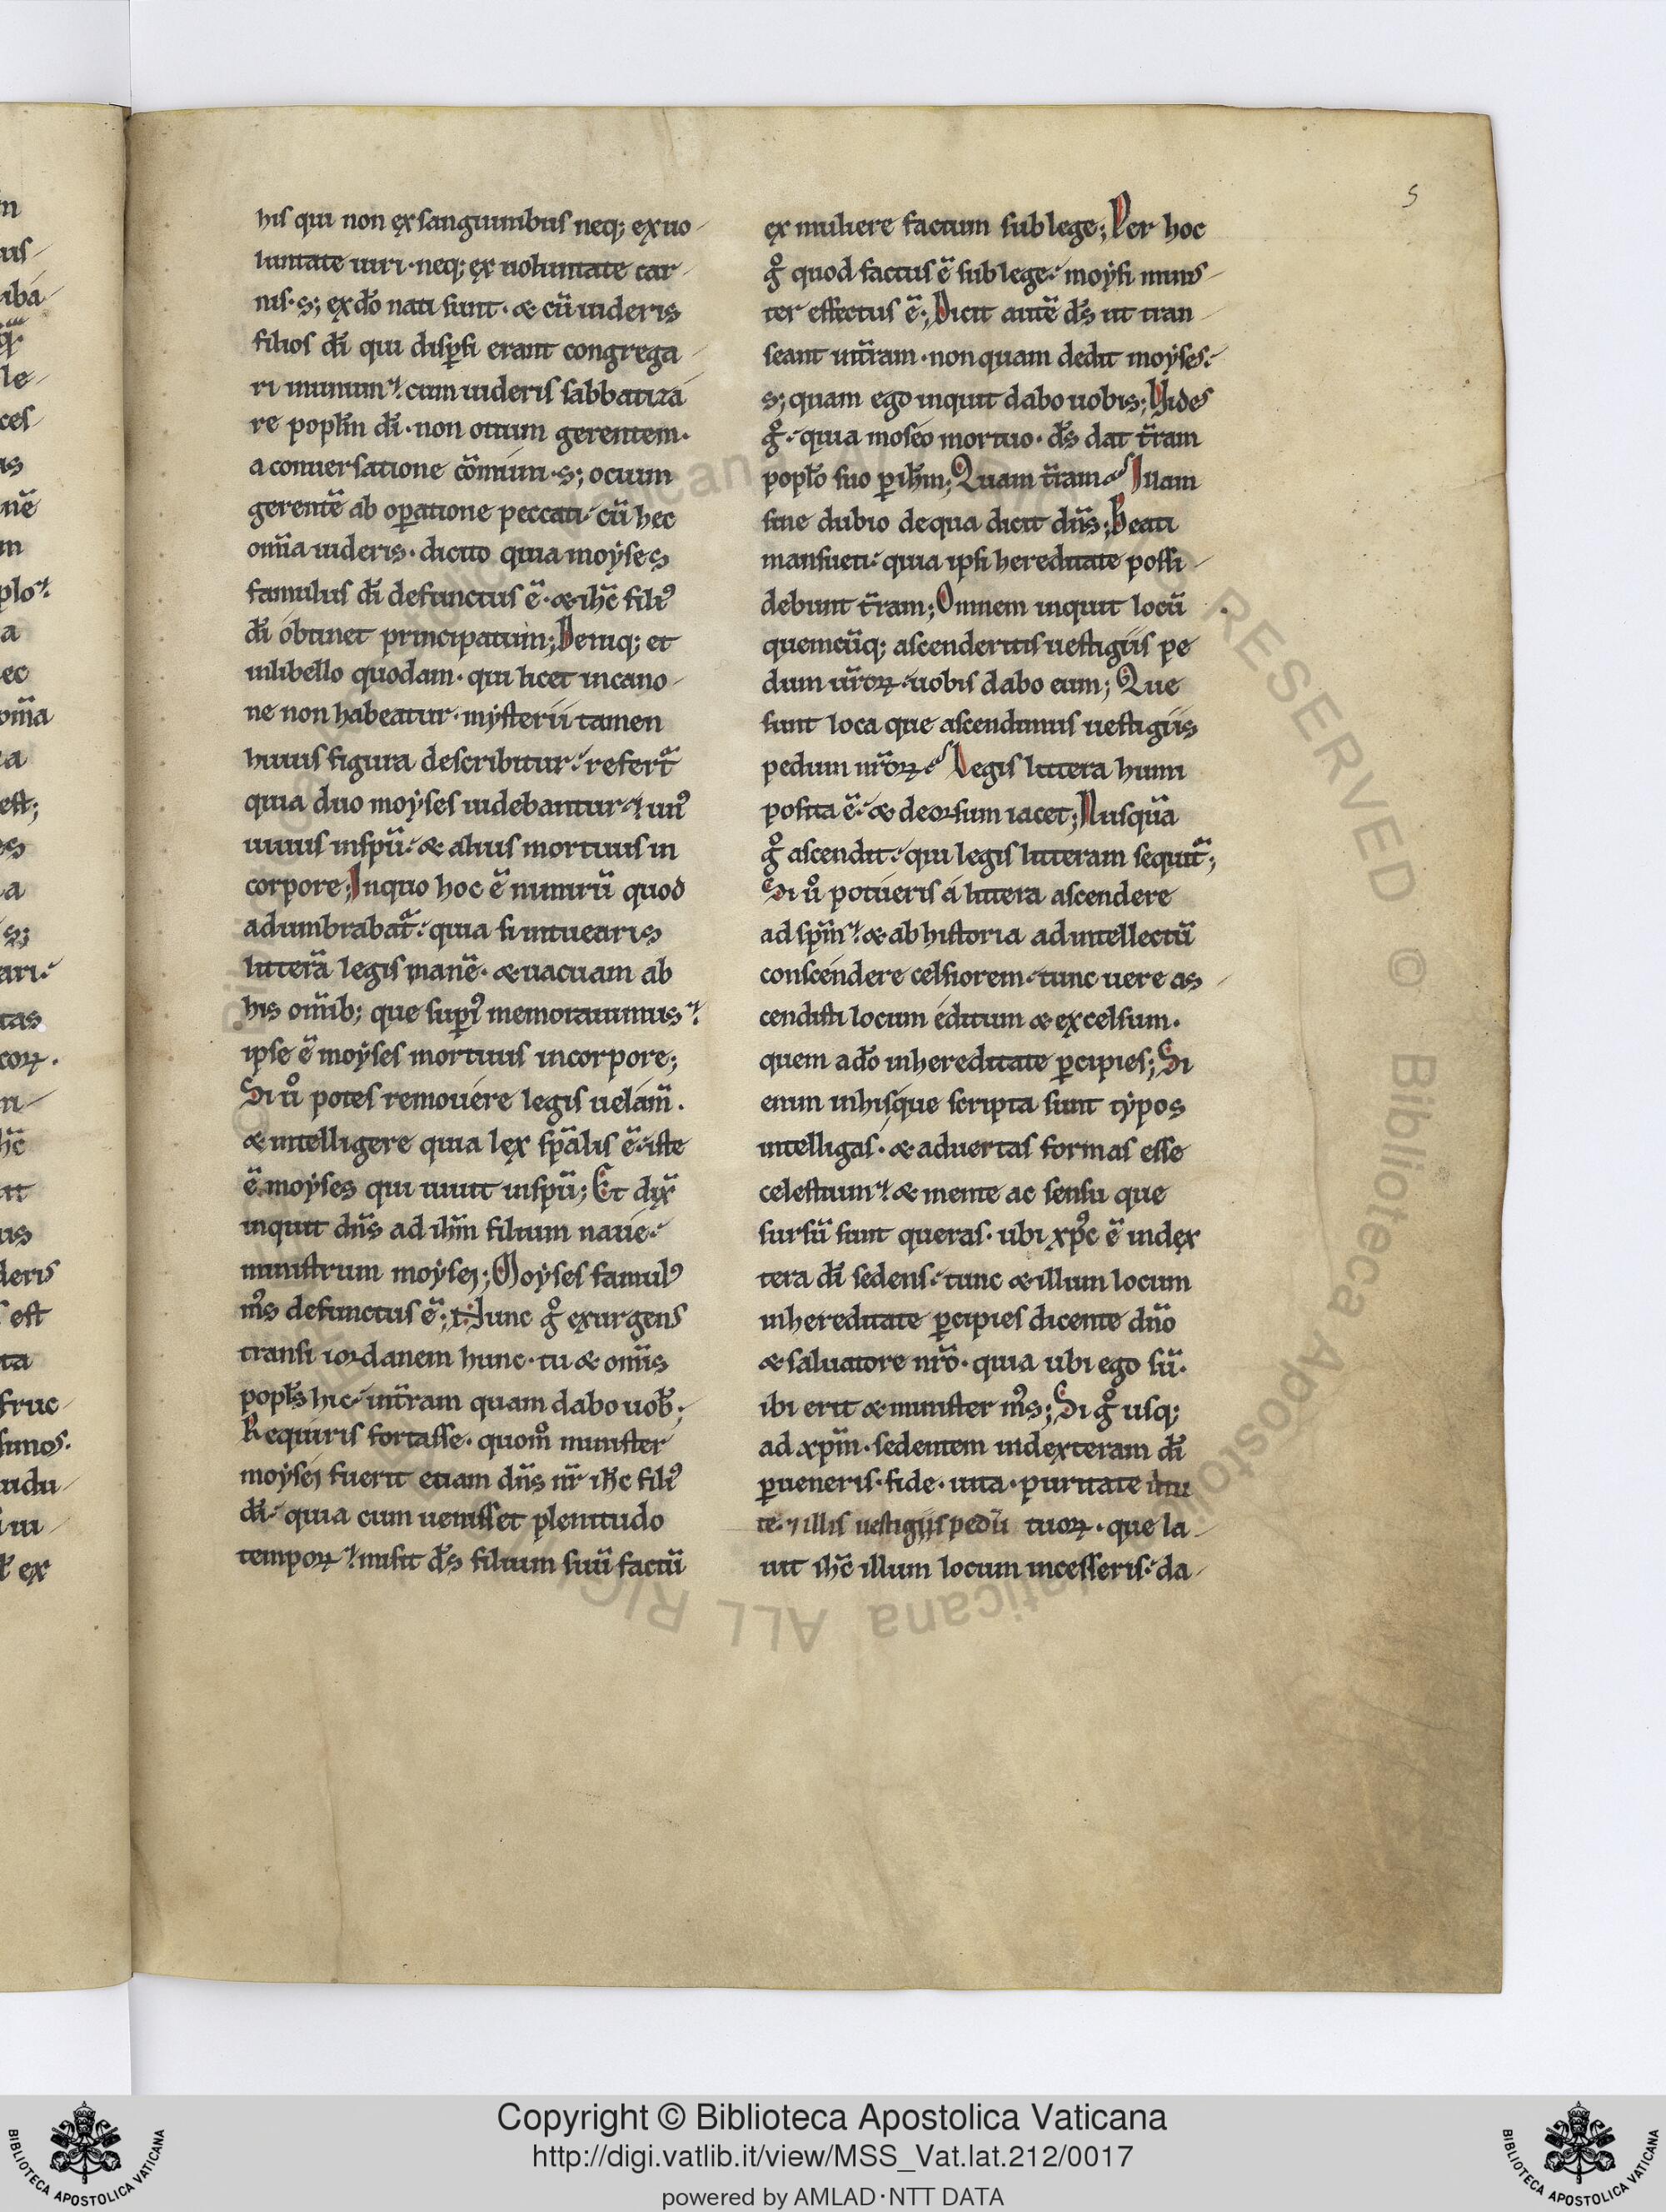 5
his qui non ex sanguinibus neq; ex uo-
luntate uiri· neq; ex uoluntate car-
nis· s; ex dõ nati sunt· & cũ uideris
filios dĩ qui disp̱si erant congrega-
ri in unum· cum uideris sabbatiza-
re popl̃m dĩ· non otium gerentem·
a conuersatione cõmuni· s; ocium
gerentẽ ab op̱atione peccati· cũ hec
om̃ia uideris· dicito quia moẏses
famulus dĩ defunctus ẽ· & ihc̃ fili᾽
dĩ obtinet principatum; Deniq; et
in libello quodam· qui licet in cano-
ne non habeatur· mẏsterii tamen
huius figura describitur· refert̃
quia duo moẏses uidebantur· un᾽
uiuus in sp̃u· & alius mortuus in
corpore; In quo hoc ẽ nimirũ quod
adumbrabat̃· quia si intuearis
litterã legis inanẽ· & uacuam ab
his om̃ib; que sup̱i᾽ memorauimus·
ipse ẽ moẏses mortuus in corpore;
Si uº potes remouere legis uelam̃·
& intelligere quia lex sp̃alis ẽ· iste
ẽ moẏses qui uiuit in sp̃u; Et dix̃
inquit dñs ad ihm̃ filium naue·
ministrum moẏsei; Moẏses famul᾽
m̃s defunctus ẽ; Nunc gº exurgens
transi iordanem hunc· tu & om̃is
popl̃s hic· in t̃ram quam dabo uob̃·
Requiris fortasse· quomº minister
moẏsei fuerit etiam dñs nr̃ ihc̃ fili᾽
dĩ· quia cum uenisset plenitudo
tempoꝝ· misit dš filium suũ factũ
ex muliere factum sub lege; Per hoc
gº quod factus ẽ sub lege· moẏsi minis-
ter effectus ẽ; Dicit autẽ dš ut tran-
seant in t̃ram· non quam dedit moẏses·
s; quam ego inquit dabo uobis; Vides
gº· quia moseo mortuo· dš dat t̃ram
popl̃o suo p̱ ihm̃; Quam t̃ram· Illam
sine dubio de qua dicit dñs; Beati
mansueti· quia ipsi hereditate possi-
debunt t̃ram; Omnem inquit locũ
quemcũq; ascenderitis uestigiis pe
dum ur̃oꝝ· uobis dabo eum; Que
sunt loca que ascendimus uestigiis
pedum nr̃oꝝ· Legis littera humi
posita ẽ· & deorsum iacet; Nusquã
gº ascendit· qui legis litteram sequit̃;
Si uº potueris a littera ascendere
ad sp̃m· & ab historia ad intellectũ
conscendere celsiorem· tunc uere as-
cendisti locum editum & excelsum·
quem a dõ in hereditate p̱cipies; Si
enim in his que scripta sunt tẏpos
intelligas· & aduertas formas esse
celestium· & mente ac sensu que
sursũ sunt queras· ubi xp̃c ẽ in dex
tera dĩ sedens· tunc & illum locum
in hereditate p̱cipies dicente dño
& saluatore nr̃o· quia ubi ego sũ·
ibi erit & minister m̃s; Si gº usq;
ad xp̃m· sedentem in dexteram dĩ
p̱ueneris· fide· uita· puritate uirtu
te· ⁊ illis uestigijs pedũ tuoꝝ· que la-
uit ihc̃ illum locum incesseris· da-
Copyright © Biblioteca Apostolica Vaticana
http://digi.vatlib.it/view/MSS_Vat.lat.212/0017
powered by AMLAD·NTT DATA
BIBLIOTECA APOSTOLICA VATICANA
BIBLIOTECA APOSTOLICA VATICANA